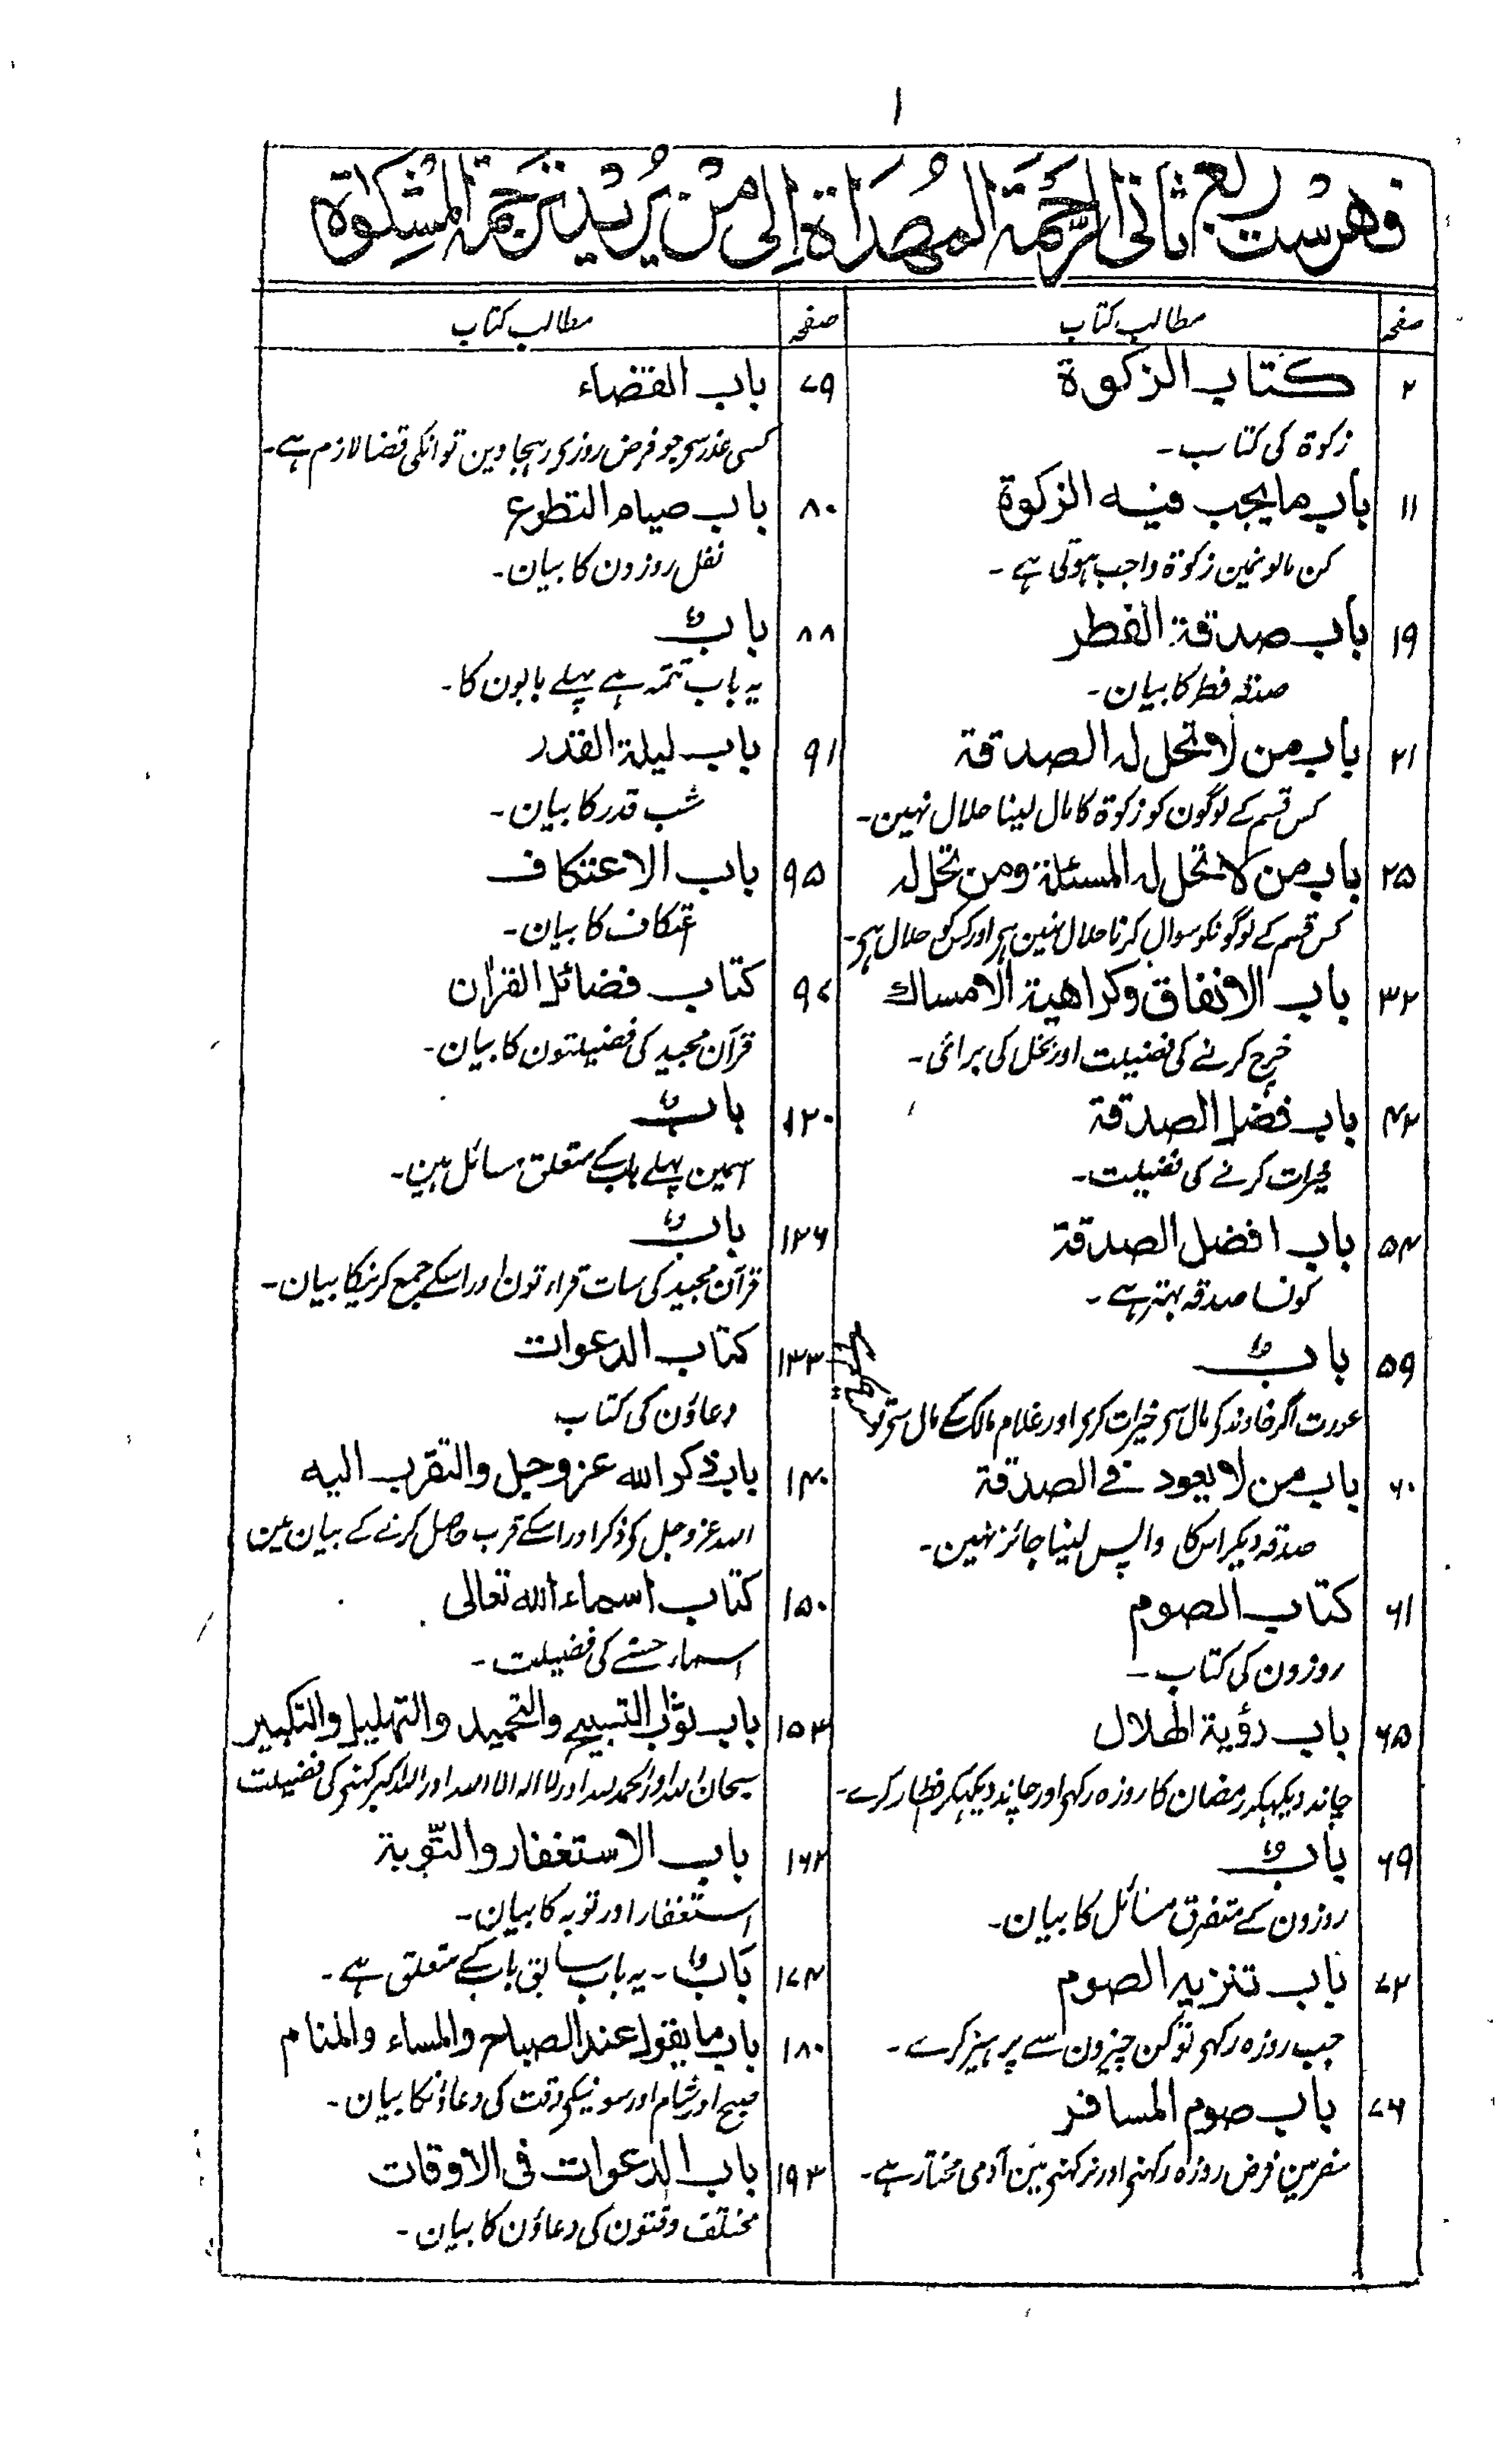 ۱
فهرست ربع ثانی الرحمة المهداة إلى من يريد ترجمة المشكوة
صفحہ مطالب کتاب
۲ كتاب الزكوة
زکوة کی کتاب۔
۱۱ باب ما يجب فيه الزكوة
کن مالونمین زکوة واجب ہوتی ہے۔
۱۹ باب صدقة الفطر
صدقہ فطر کا بیان۔
۲۱ باب من لا تحل له الصدقة
کس قسم کے لوگون کو زکوة کا مال لینا حلال نہین۔
۲۵ باب من لا تحل له المسئلة ومن تحل له
کس قسم کے لوگونکو سوال کرنا حلال نہین ہی اور کسکو حلال ہی۔
۳۲ باب الانفاق وكراهية الامساك
خرچ کرنے کی فضیلت اور بخل کی برائی۔
۴۲ باب فضل الصدقة
خیرات کرنے کی فضیلت۔
۵۴ باب افضل الصدقة
کونسا صدقہ بہتر ہے۔
۵۹ باب
عورت اگر خاوند کی مال سی خیرات کری اور غلام مالک کے مال سی تو
۶۰ باب من لا يعود فى الصدقة
صدقہ دیکر اسکا واپس لینا جائز نہین۔
۶۱ كتاب الصوم
روزون کی کتاب۔
۶۵ باب رؤية الهلال
چاند دیکہکر رمضان کا روزہ رکہی اور چاند دیکہکر افطار کرے۔
۶۹ باب
روزون کے متفرق مسائل کا بیان۔
۷۲ باب تنزيه الصوم
جب روزہ رکہی تو کن چیزون سے پرہیز کرے۔
۷۶ باب صوم المسافر
سفر مین فرض روزہ رکہنی اور نرکہنی مین آدمی مختار ہے۔
صفحہ مطالب کتاب
۷۹ باب القضاء
کسی عذر سی جو فرض روزی رہجاوین تو انکی قضا لازم ہے۔
۸۰ باب صيام التطوع
نفل روزون کا بیان۔
۸۸ باب
یہ باب تتمہ ہے پہلے بابون کا۔
۹۱ باب ليلة القدر
شب قدر کا بیان۔
۹۵ باب الاعتكاف
اعتکاف کا بیان۔
۹۷ كتاب فضائل القران
قرآن مجید کی فضیلتون کا بیان۔
۱۲۰ باب
اسمین پہلے باب کے متعلق مسائل ہین۔
۱۲۶ باب
قرآن مجید کی سات قراءتون اور اسکے جمع کرنیکا بیان۔
۱۳۳ كتاب الدعوات
دعاؤن کی کتاب
۱۴۰ باب ذكر الله عز وجل والتقرب اليه
اللہ عز و جل کی ذکر اور اسکے قرب حاصل کرنے کے بیان مین
۱۵۰ كتاب اسماء الله تعالى
اسماء حسنے کی فضیلت۔
۱۵۳ باب ثواب التسبيح والتحميد والتهليل والتكبير
سبحان اللہ اور الحمد للہ اور لا الہ الا اللہ اور اللہ اکبر کہنی کی فضیلت
۱۶۲ باب الاستغفار والتوبة
استغفار اور توبہ کا بیان۔
۱۷۴ باب۔ یہ باب سابق باب کے متعلق ہے۔
۱۸۰ باب ما يقول عند الصباح والمساء والمنام
صبح اور شام اور سونیکی وقت کی دعاؤنکا بیان۔
۱۹۳ باب الدعوات فى الاوقات
مختلف وقتون کی دعاؤن کا بیان۔